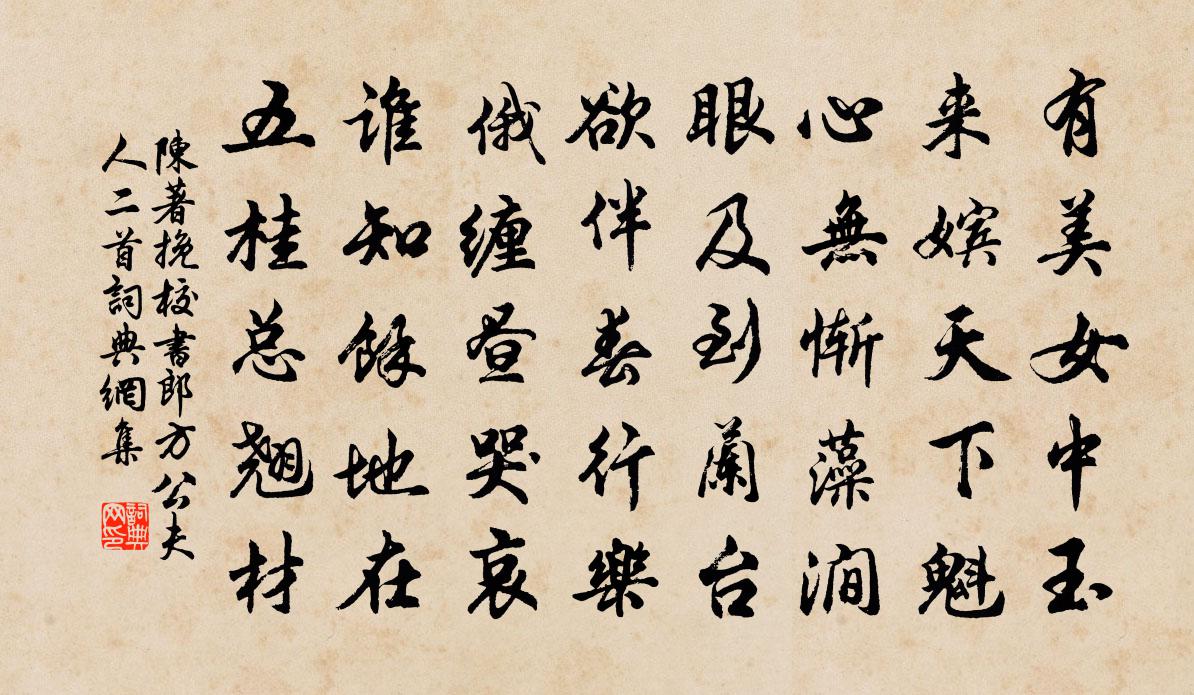 有美女中玉
来嫔天下魁
心無慚藻涧
眼及到蘭台
欲伴春行樂
俄缠昼哭哀
谁知餘地在
五桂总翘材
陳著挽校書郎方公夫
人二首詞典網集
詞典
网印